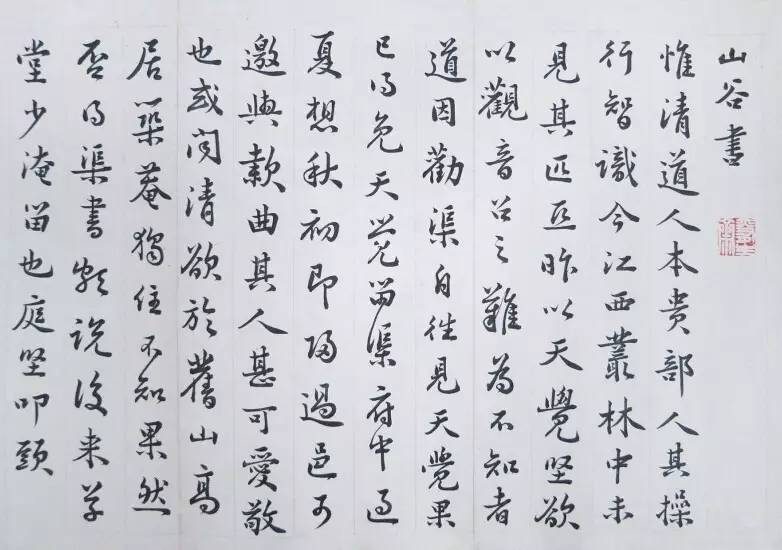 山谷書
惟清道人本貴部人其操
行智識今江西叢林中未
見其匹亞昨以天覺堅欲
以觀音召之難為不知者
道因勸渠自往見天覺果
已得免天覺留渠府中過
夏想秋初即歸過邑可
邀與款曲其人甚可愛敬
也或聞清欲於舊山高
居築菴獨住不知果然
否得渠書頗說後來草
堂少淹留也庭堅叩頭